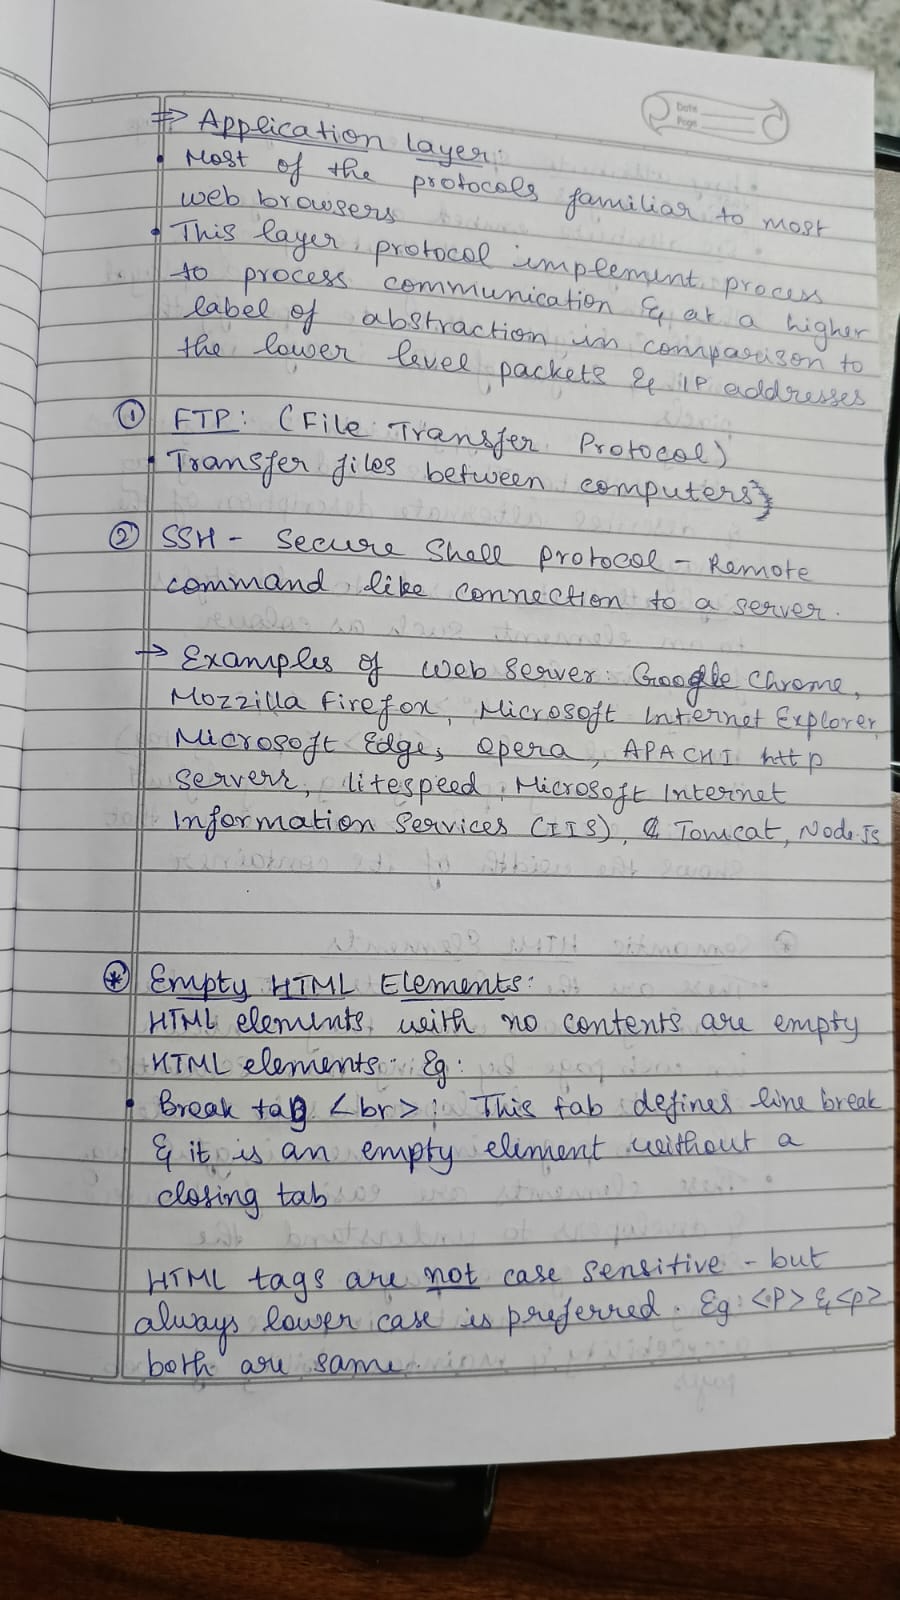 Date
Page
⇒ Application layer:
• Most of the protocols familiar to most
web browsers
• This layer, protocol implement process
to process communication & at a higher
label of abstraction in comparison to
the lower level packets & IP addresses
① FTP: (File Transfer Protocol)
• Transfer files between computers}
② SSH - Secure Shell protocol - Remote
command, like connection to a server.
→ Examples of web server: Google Chrome,
Mozzilla Firefox, Microsoft Internet Explorer,
Microsoft Edge, Opera, APACHI http
servers, litespeed, Microsoft Internet
Information Services (IIS), & Tomcat, Node.Js
⊛ Empty HTML Elements:
HTML elements, with no contents are empty
HTML elements. Eg:
• Break tag <br>: This tab defines line break
& it is an empty element without a
closing tab
HTML tags are not case sensitive - but
always lower case is preferred. Eg: <P> & <p>
both are same.